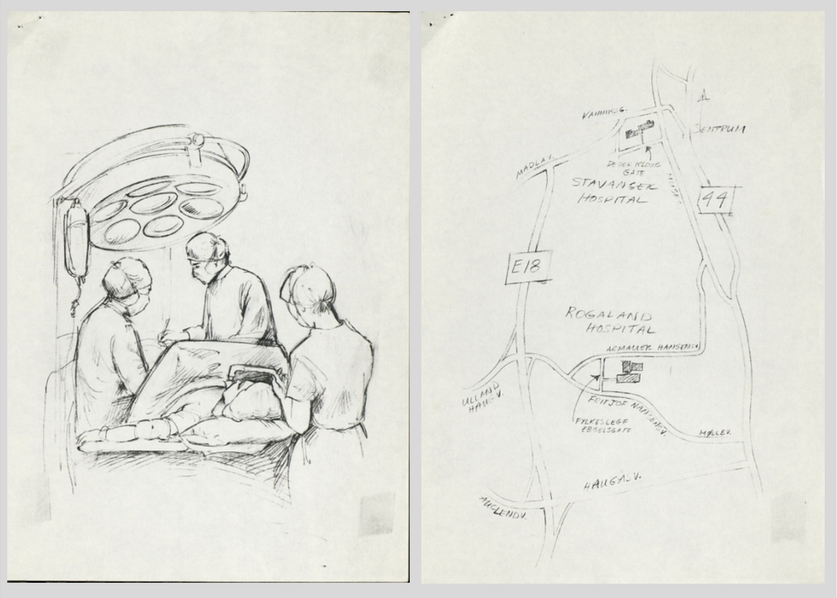 VANNVSG.
SENTRUM
MADLAV.
GATE
STAVANGER
HOSPITAL
44
E18
ROGALAND
HOSPITAL
ARMAUER HANSENSV.
ULLAND
HAUGV.
FRITJOF NANSENSV.
FYLKESLEGE
EBBELSGATE
MØLLER
HAUGÅ.V.
AUGLENDV.